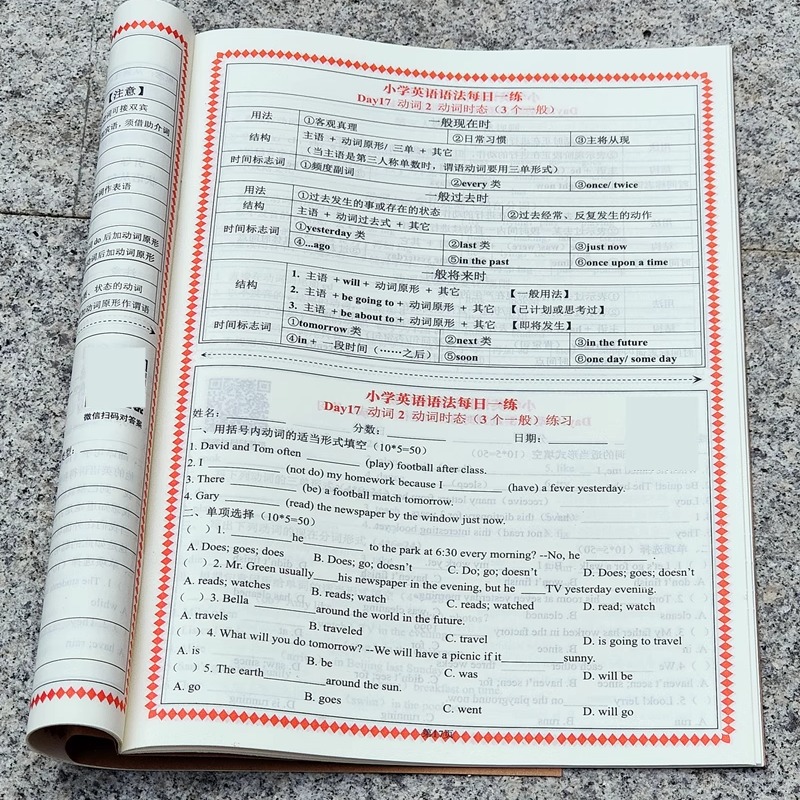 【注意】
可接双宾
宾语，须借助介词
词作表语
do 后加动词原形
词后加动词原形
、状态的动词
动词原形作谓语
微信扫码对答案
小学英语语法每日一练
Day17 动词 2 动词时态（3 个一般）
一般现在时
用法 ①客观真理 ②日常习惯 ③主将从现
结构 主语 + 动词原形/ 三单 + 其它
（当主语是第三人称单数时，谓语动词要用三单形式）
时间标志词 ①频度副词 ②every 类 ③once/ twice
一般过去时
用法 ①过去发生的事或存在的状态 ②过去经常、反复发生的动作
结构 主语 + 动词过去式 + 其它
时间标志词 ①yesterday 类 ②last 类 ③just now
④...ago ⑤in the past ⑥once upon a time
一般将来时
结构 1. 主语 + will + 动词原形 + 其它 【一般用法】
2. 主语 + be going to + 动词原形 + 其它 【已计划或思考过】
3. 主语 + be about to + 动词原形 + 其它 【即将发生】
时间标志词 ①tomorrow 类 ②next 类 ③in the future
④in + 一段时间（……之后） ⑤soon ⑥one day/ some day
小学英语语法每日一练
Day17 动词 2 动词时态（3 个一般）练习
姓名：________ 分数：________ 日期：________
一、用括号内动词的适当形式填空（10*5=50）
1. David and Tom often ________ (play) football after class.
2. I ________ (not do) my homework because I ________ (have) a fever yesterday.
3. There ________ (be) a football match tomorrow.
4. Gary ________ (read) the newspaper by the window just now.
二、单项选择（10*5=50）
( ) 1. ________he________ to the park at 6:30 every morning? --No, he ________.
A. Does; goes; does B. Does; go; doesn't C. Do; go; doesn't D. Does; goes; doesn't
( ) 2. Mr. Green usually____his newspaper in the evening, but he ____ TV yesterday evening.
A. reads; watches B. reads; watch C. reads; watched D. read; watch
( ) 3. Bella ________around the world in the future.
A. travels B. traveled C. travel D. is going to travel
( ) 4. What will you do tomorrow? --We will have a picnic if it________sunny.
A. is B. be C. was D. will be
( ) 5. The earth________around the sun.
A. go B. goes C. went D. will go
第17页